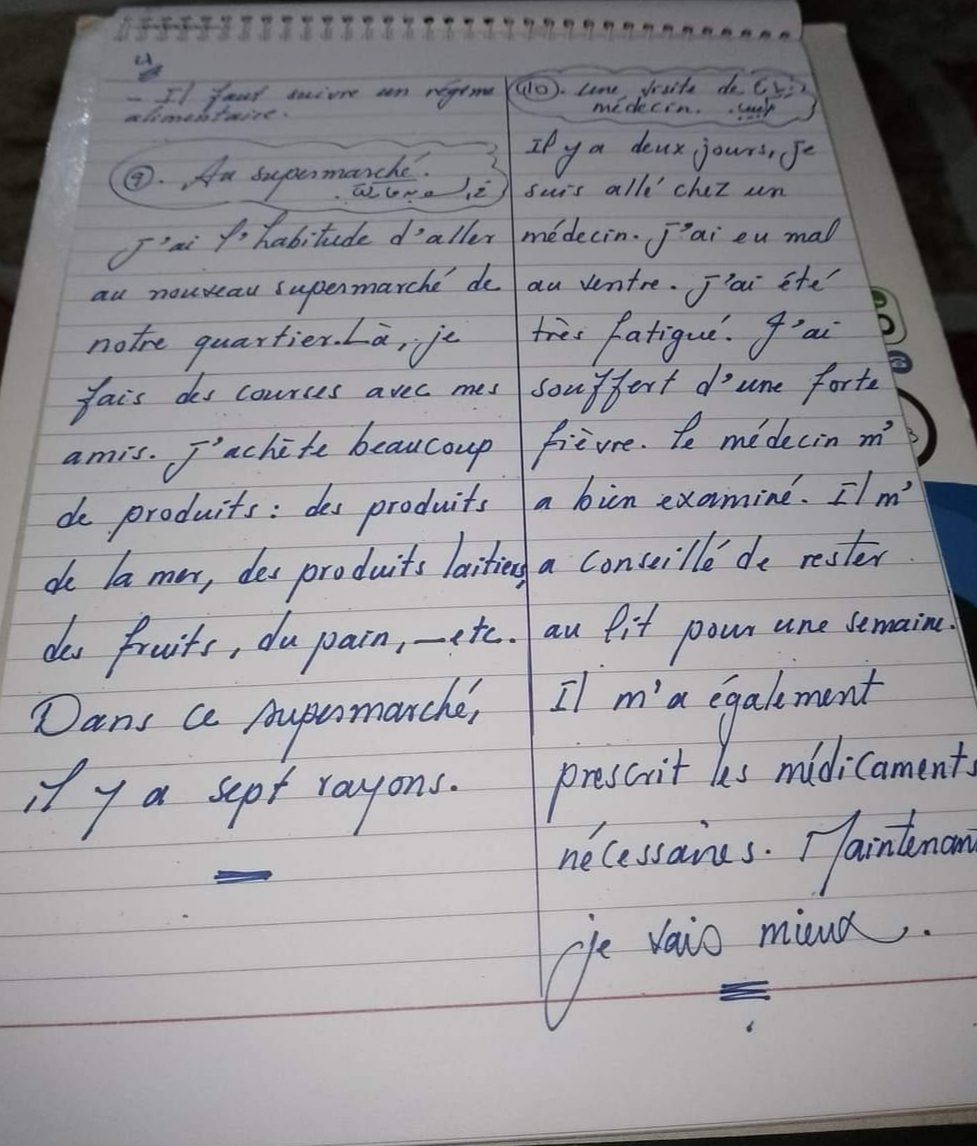 - Il faut suivre un régime
alimentaire.
⑨. Au supermarché.
J'ai l'habitude d'aller
au nouveau supermarché de
notre quartier. Là, je
fais des courses avec mes
amis. J'achète beaucoup
de produits: des produits
de la mer, des produits laitiers,
des fruits, du pain, —etc.
Dans ce supermarché,
il y a sept rayons.
⑩. Une visite de
médecin.
Il y a deux jours, je
suis allé chez un
médecin. J'ai eu mal
au ventre. J'ai été
très fatigué. J'ai
souffert d'une forte
fièvre. Le médecin m'
a bien examiné. Il m'
a conseillé de rester
au lit pour une semaine.
Il m'a également
prescrit les médicaments
nécessaires. Maintenan
je vais mieux.